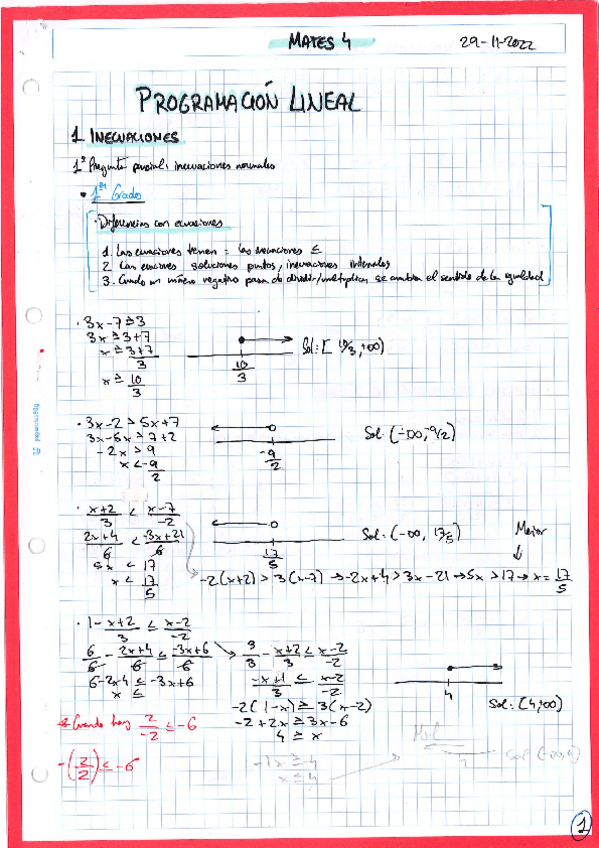 MATES 4
29-11-2022
PROGRAMACIÓN LINEAL
1. INECUACIONES
1ª Pregunta parcial: inecuaciones normales
• 1er Grado
· Diferencias con ecuaciones
1. Las ecuaciones tienen = las inecuaciones ≤
2. Las ecuaciones soluciones puntos, inecuaciones intervalos
3. Cuando un número negativo pasa de dividir/multiplicar se cambia el sentido de la igualdad
· 3x-7≥3
3x≥3+7
x≥ 3+7/3
x≥ 10/3
10/3
Sol: [10/3, +∞)
· 3x-2>5x+7
3x-5x>7+2
-2x>9
x<-9/2
-9/2
Sol: (-∞,-9/2)
· x+2/3 < x-7/-2
2x+4/6 < -3x+21/6
5x < 17
x < 17/5
17/5
Sol: (-∞, 17/5)
Mejor
↓
-2(x+2)>3(x-7) → -2x+4>3x-21 → 5x>17 → x= 17/5
· 1- x+2/3 ≤ x-2/-2
6/6 - 2x+4/6 ≤ -3x+6/6
6-2x-4 ≤ -3x+6
x ≤
3/3 - x+2/3 ≤ x-2/-2
-x+1/3 ≤ x-2/-2
-2(1-x)≥3(x-2)
-2+2x≥3x-6
4≥x
4
Sol: [4,∞)
Cuando hay 2/-2 ≤ -6
-(3/2) ≤ -6
-1x≥-4
x≤4
Mal
4
1